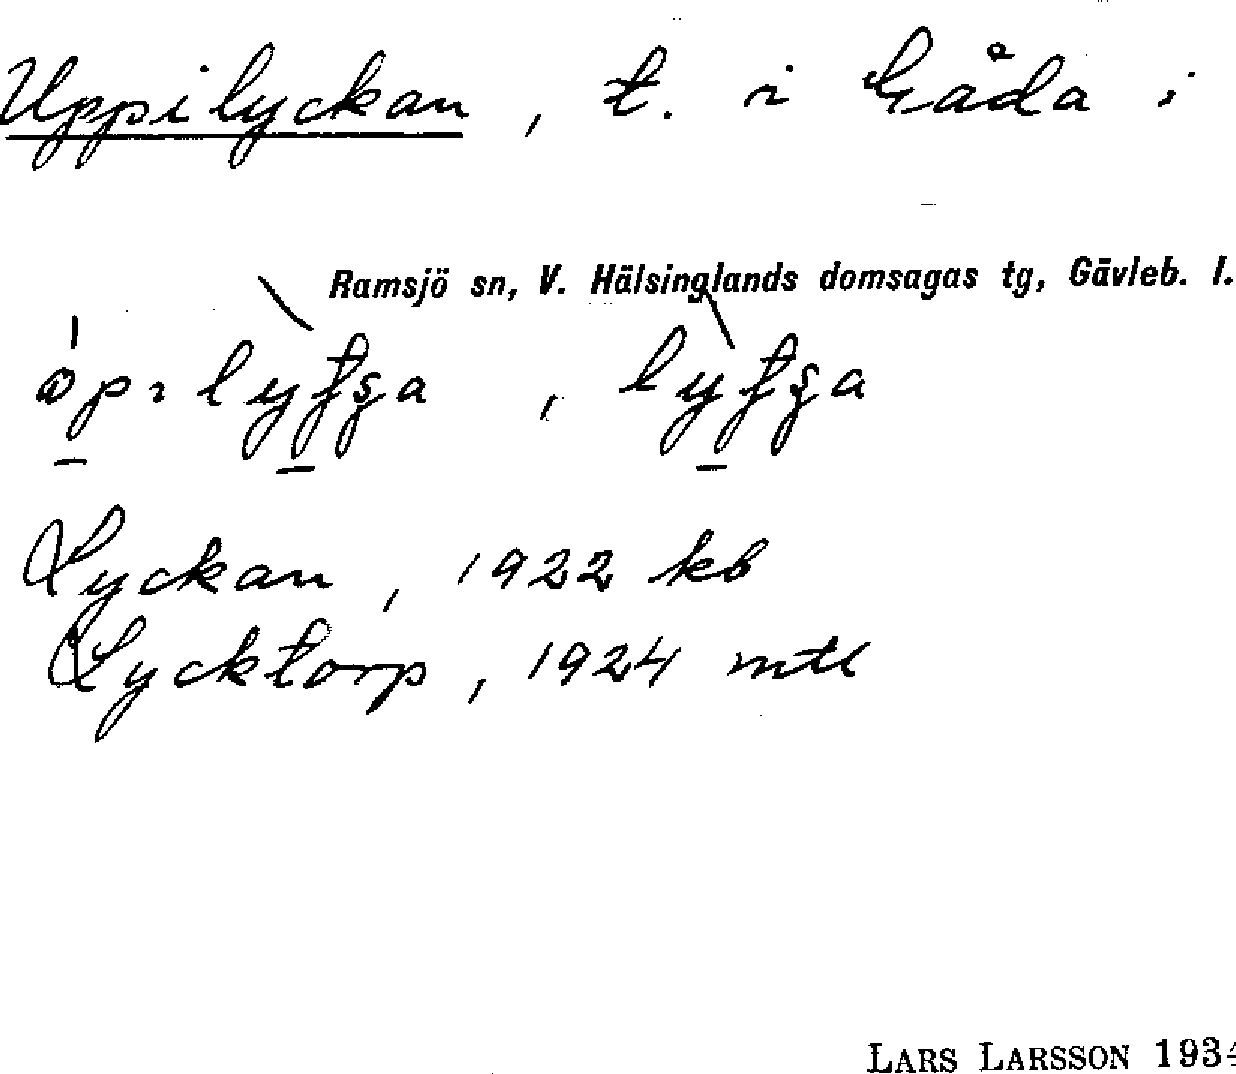 Uppilyckan, t. i Gåda i
Ramsjö sn, V. Hälsinglands domsagas tg, Gävleb. l.
Lyckan, 1922 kb
Lycktorp, 1924 mtl
LARS LARSSON 1934